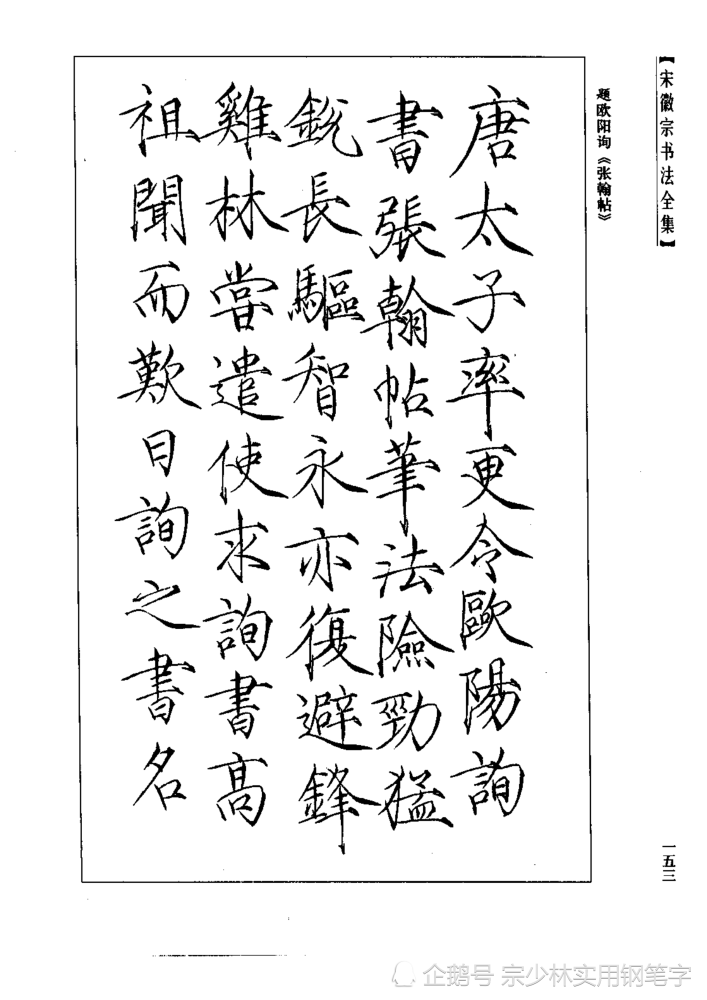 【宋徽宗书法全集】
题欧阳询《张翰帖》
唐太子率更令歐陽詢
書張翰帖筆法險勁猛
銳長驅智永亦復避鋒
雞林嘗遣使求詢書高
祖聞而歎曰詢之書名
一五三
企鹅号 宗少林实用钢笔字